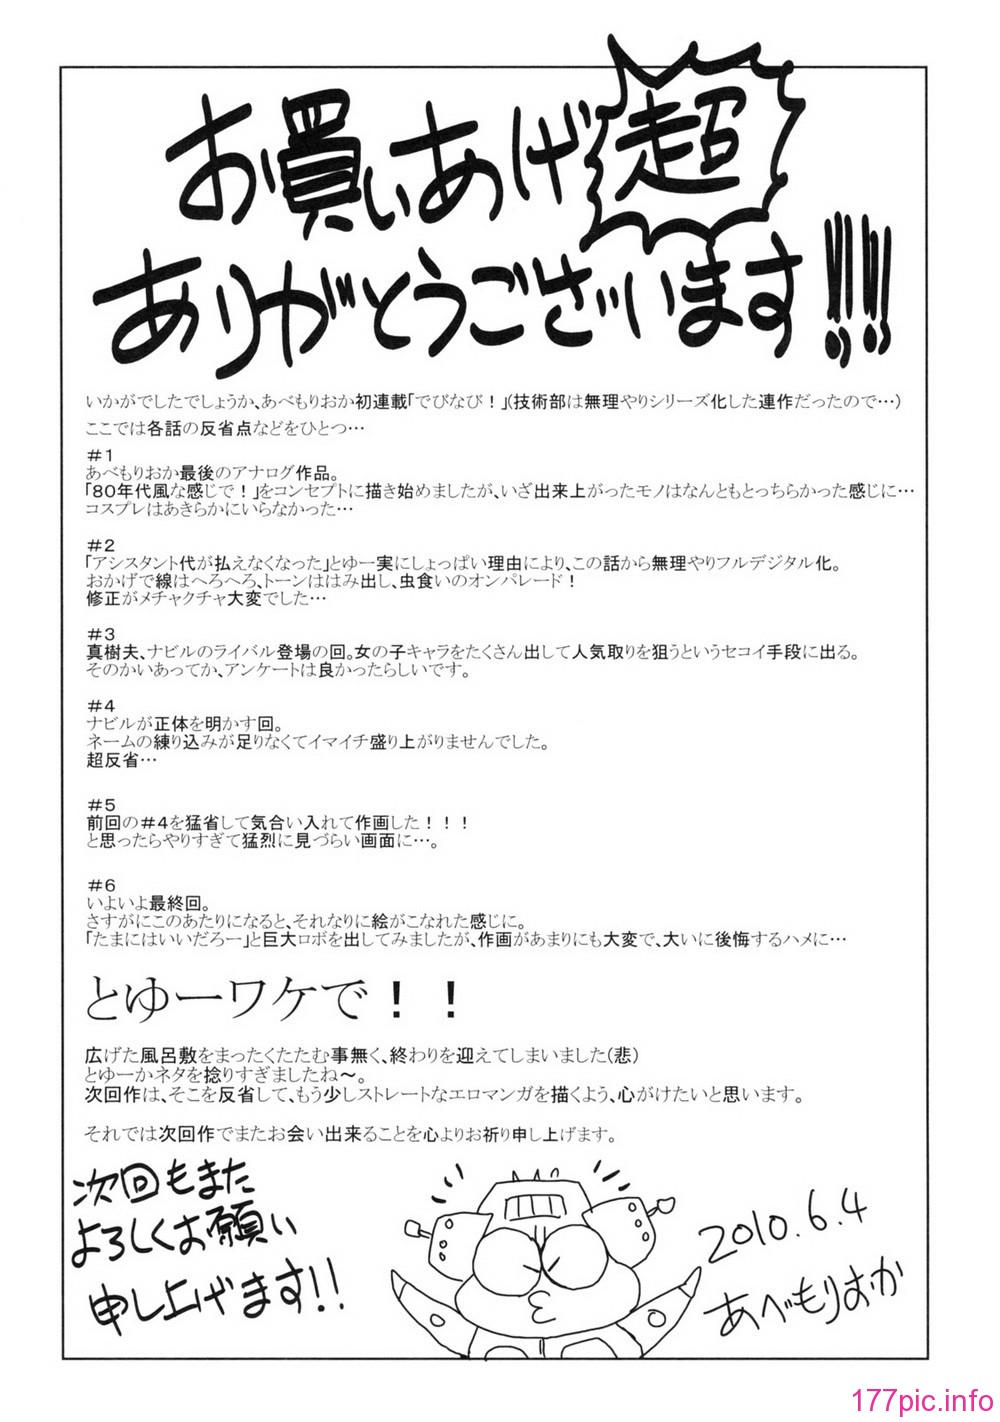 お買いあげ超
ありがとうございます!!!!
いかがでしたでしょうか、あべもりおか初連載「でびなび！」(技術部は無理やりシリーズ化した連作だったので…)
ここでは各話の反省点などをひとつ…
＃１
あべもりおか最後のアナログ作品。
「80年代風な感じで！」をコンセプトに描き始めましたが、いざ出来上がったモノはなんともとっちらかった感じに…
コスプレはあきらかにいらなかった…
＃２
「アシスタント代が払えなくなった」とゆー実にしょっぱい理由により、この話から無理やりフルデジタル化。
おかげで線はへろへろ、トーンははみ出し、虫食いのオンパレード！
修正がメチャクチャ大変でした…
＃３
真樹夫、ナビルのライバル登場の回。女の子キャラをたくさん出して人気取りを狙うというセコイ手段に出る。
そのかいあってか、アンケートは良かったらしいです。
＃４
ナビルが正体を明かす回。
ネームの練り込みが足りなくてイマイチ盛り上がりませんでした。
超反省…
＃５
前回の＃４を猛省して気合い入れて作画した！！！
と思ったらやりすぎて猛烈に見づらい画面に…。
＃６
いよいよ最終回。
さすがにこのあたりになると、それなりに絵がこなれた感じに。
「たまにはいいだろー」と巨大ロボを出してみましたが、作画があまりにも大変で、大いに後悔するハメに…
とゆーワケで！！
広げた風呂敷をまったくたたむ事無く、終わりを迎えてしまいました(悲)
とゆーかネタを捻りすぎましたね～。
次回作は、そこを反省して、もう少しストレートなエロマンガを描くよう、心がけたいと思います。
それでは次回作でまたお会い出来ることを心よりお祈り申し上げます。
次回もまた
よろしくお願い
申し上げます!!
2010.6.4
あべもりおか
177pic.info